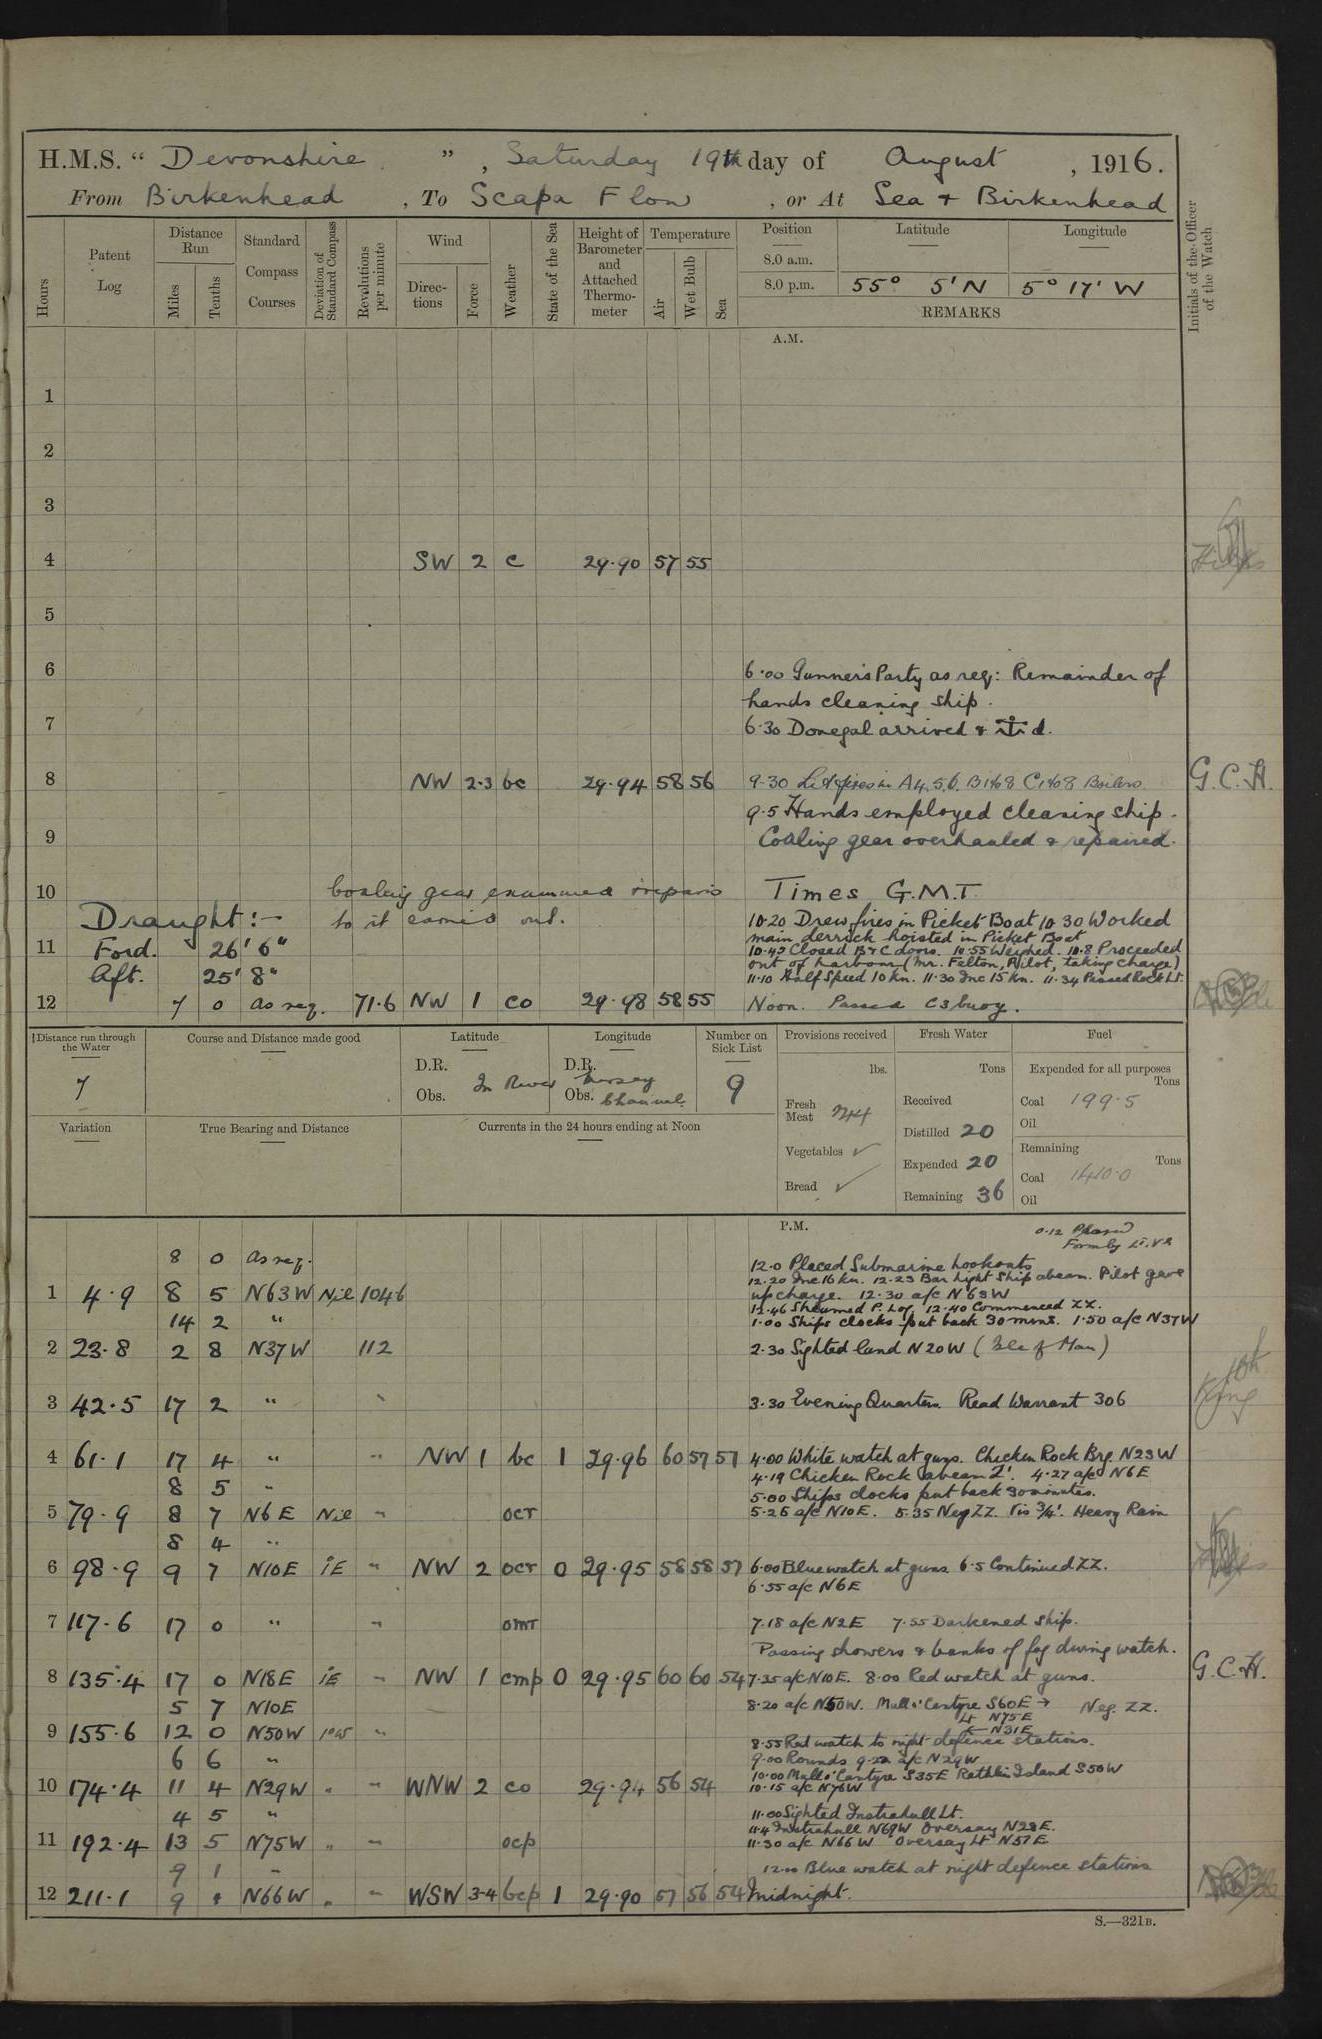 H.M.S. "Devonshire", Saturday 19th day of August, 1916.
From Birkenhead, To Scapa Flow, or At Sea & Birkenhead
Hours
Patent Log
Distance Run
Miles
Tenths
Standard Compass Courses
Deviation of Standard Compass
Revolutions per minute
Wind
Directions
Force
Weather
State of the Sea
Height of Barometer and Attached Thermometer
Temperature
Air
Wet Bulb
Sea
Position
Latitude
Longitude
8.0 a.m.
8.0 p.m. 55° 5' N 5° 17' W
REMARKS
Initials of the Officer of the Watch
A.M.
1
2
3
4 SW 2 c 29.90 57 55
5
6 6.00 Gunner's Party as req: Remainder of
hands cleaning ship.
7 6.30 Donegal arrived & ⚓d.
8 NW 2.3 bc 29.94 58 56 9.30 Lit fires in A4,5,6. B1to8 C1to8 Boilers G.C.H.
9.5 Hands employed cleaning ship.
9 Coaling gear overhauled & repaired.
10 Coaling gear examined repairs Times G.M.T.
Draught:- to it carried out. 10.20 Drew fires in Picket Boat 10.30 Worked
main derrick hoisted in Picket Boat
11 Ford. 26' 6" 10.45 Closed B & C doors. 10.55 Weighed. 10.8 Proceeded
out of harbour (Mr. Felton, Pilot, taking charge)
Aft. 25' 8" 11.10 Half Speed 10 kn. 11.30 Inc 15 kn. 11.34 Passed Rock Lt.
12 7 0 as req. 71.6 NW 1 co 29.98 58 55 Noon. Passed C3 buoy.
Distance run through the Water
Course and Distance made good
Latitude
Longitude
Number on Sick List
Provisions received
Fresh Water
Fuel
7
D.R.
Obs.
In River Mersey Channel
D.R.
Obs.
9
lbs.
Fresh Meat 244
Vegetables ✓
Bread ✓
Tons
Received
Distilled 20
Expended 20
Remaining 36
Expended for all purposes
Tons
Coal 199.5
Oil
Remaining
Tons
Coal 1440.0
Oil
Variation
True Bearing and Distance
Currents in the 24 hours ending at Noon
P.M.
0.12 Passed
Formby Lt. Vs
8 0 as req. 12.0 Placed Submarine lookouts
12.20 Inc 16 kn. 12.23 Bar Light Ship abeam. Pilot gave
1 4.9 8 5 N63W Nil 1046 up charge. 12.30 a/c N63W
12.46 Streamed P. Log. 12.40 Commenced ZZ.
14 2 " 1.00 Ships clocks put back 30 mins. 1.50 a/c N37W
2 23.8 2 8 N37W 112 2.30 Sighted land N20W (Isle of Man)
3 42.5 17 2 " " 3.30 Evening Quarters Read Warrant 306
King
4 61.1 17 4 " " NW 1 bc 1 29.96 60 57 57 4.00 White watch at guns. Chicken Rock Brg. N23W
8 5 " 4.19 Chicken Rock abeam 2'. 4.27 a/c N6E
5.00 Ships clocks put back 30 minutes.
5 79.9 8 7 N6E Nil " ocr 5.25 a/c N10E. 5.35 Neg ZZ. Vis 3/4'. Heavy Rain
8 4 "
6 98.9 9 7 N10E 1E " NW 2 ocr 0 29.95 58 58 57 6.00 Blue watch at guns 6.5 Continued ZZ.
6.55 a/c N6E
7 117.6 17 0 " " omr 7.18 a/c N2E 7.55 Darkened ship.
Passing showers & banks of fog during watch.
8 135.4 17 0 N18E 1E " NW 1 cmp 0 29.95 60 60 54 7.25 a/c N10E. 8.00 Red watch at guns. G.C.H.
5 7 N10E 8.20 a/c N50W. Mull o' Cantyre S60E → Neg. ZZ.
Lt N75E
← N31E
9 155.6 12 0 N50W " 8.55 Red watch to night defence stations.
6 6 " 9.00 Rounds 9.22 a/c N29W
10.00 Mull o' Cantyre S35E Rathlin Island S50W
10 174.4 11 4 N29W " " WNW 2 co 29.94 56 54 10.15 a/c N76W
4 5 " 11.00 Sighted Instrahull Lt.
11.4 Instrahull N69W Oversay N28E.
11 192.4 13 5 N75W " " ocp 11.30 a/c N66W Oversay Lt N57E
9 1 " 12.00 Blue watch at night defence stations
12 211.1 9 N66W " " WSW 3-4 bcp 1 29.90 57 56 54 Midnight.
S.—321B.